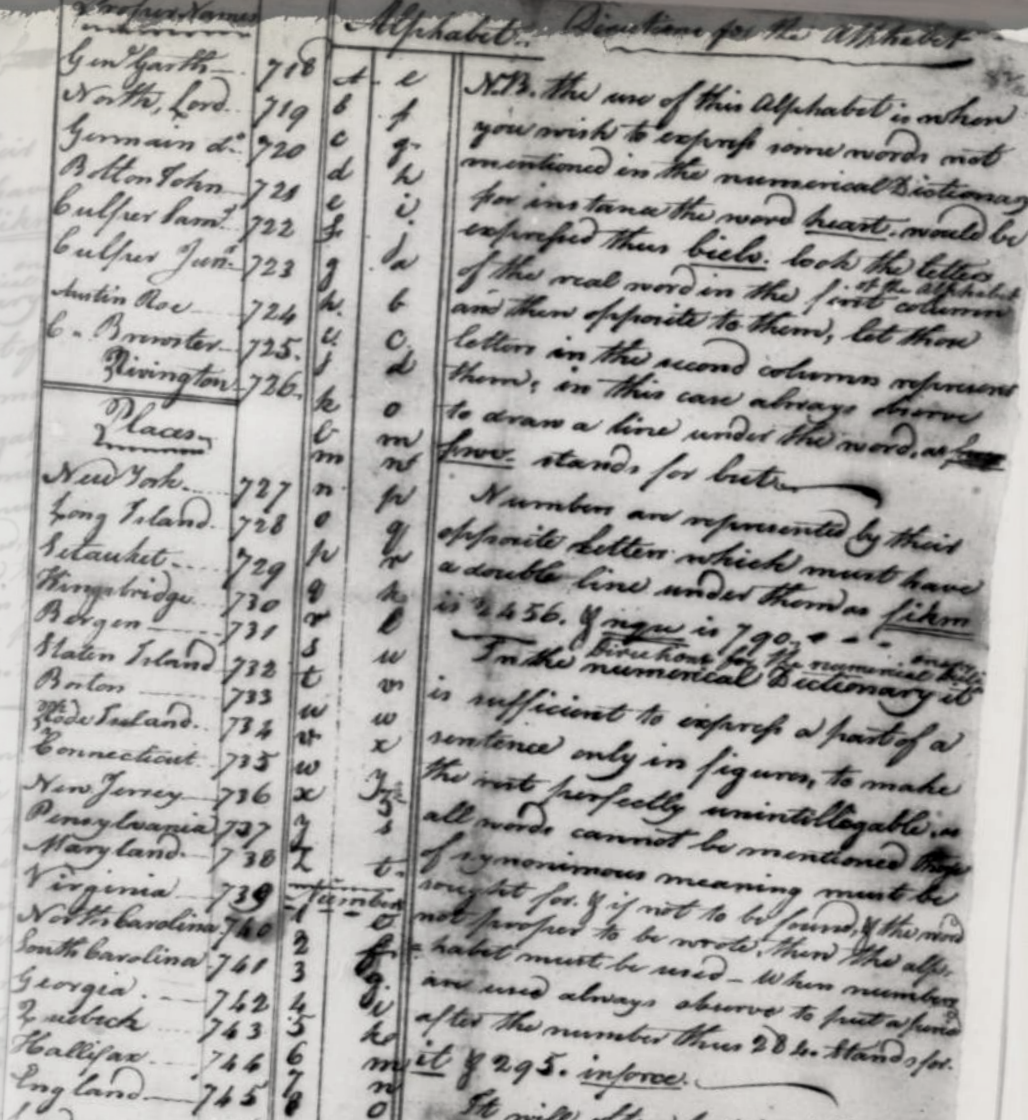 Proper Names
Gen.l Garth 718
North, Lord 719
Germain d.o 720
Bolton John 721
Culper Sam.l 722
Culper Jun.r 723
Austin Roe 724
C. Brewster 725.
Rivington 726.
Places
New York 727
Long Island 728
Setauket 729
Kingsbridge 730
Bergen 731
Staten Island 732
Boston 733
Rode Island 734
Connecticut 735
New Jersey 736
Pensylvania 737
Maryland 738
Virginia 739
North Carolina 740
South Carolina 741
Georgia 742
Quebeck 743
Hallifax 744
England 745
Alphabet
a e
b f
c g
d h
e i
f j
g a
h b
i c
j d
k o
l m
m n
n p
o q
p r
q k
r l
s u
t v
u w
v x
w y
x z
y s
z t
Numbers
1 e
2 f
3 g
4 i
5 k
6 m
7 n
8 o
Directions for the Alphabet
N.B. the use of this Alphabet is when
you wish to express some words not
mentioned in the numerical Dictionary
for instance the word heart. would be
expressed thus biels. look the letters
of the real word in the first column
of the alphabet
and then opposite to them, let those
letters in the second column represent
them, in this case always observe
to draw a line under the word, as
fwv. stands for but
Numbers are represented by their
opposite letters which must have
a double line under them as fikm
is 2456. & nqu is 790.
Directions for the numerical
In the numerical Dictionary it
is sufficient to express a part of a
sentence only in figures, to make
the rest perfectly unintellegable, as
all words cannot be mentioned those
of synonimous meaning must be
sought for. & if not to be found, & the word
not proper to be wrote, then the alp-
habet must be used - when numbers
are used always observe to put a period
after the number thus 284. stands for.
it & 295. inforce.
It will often